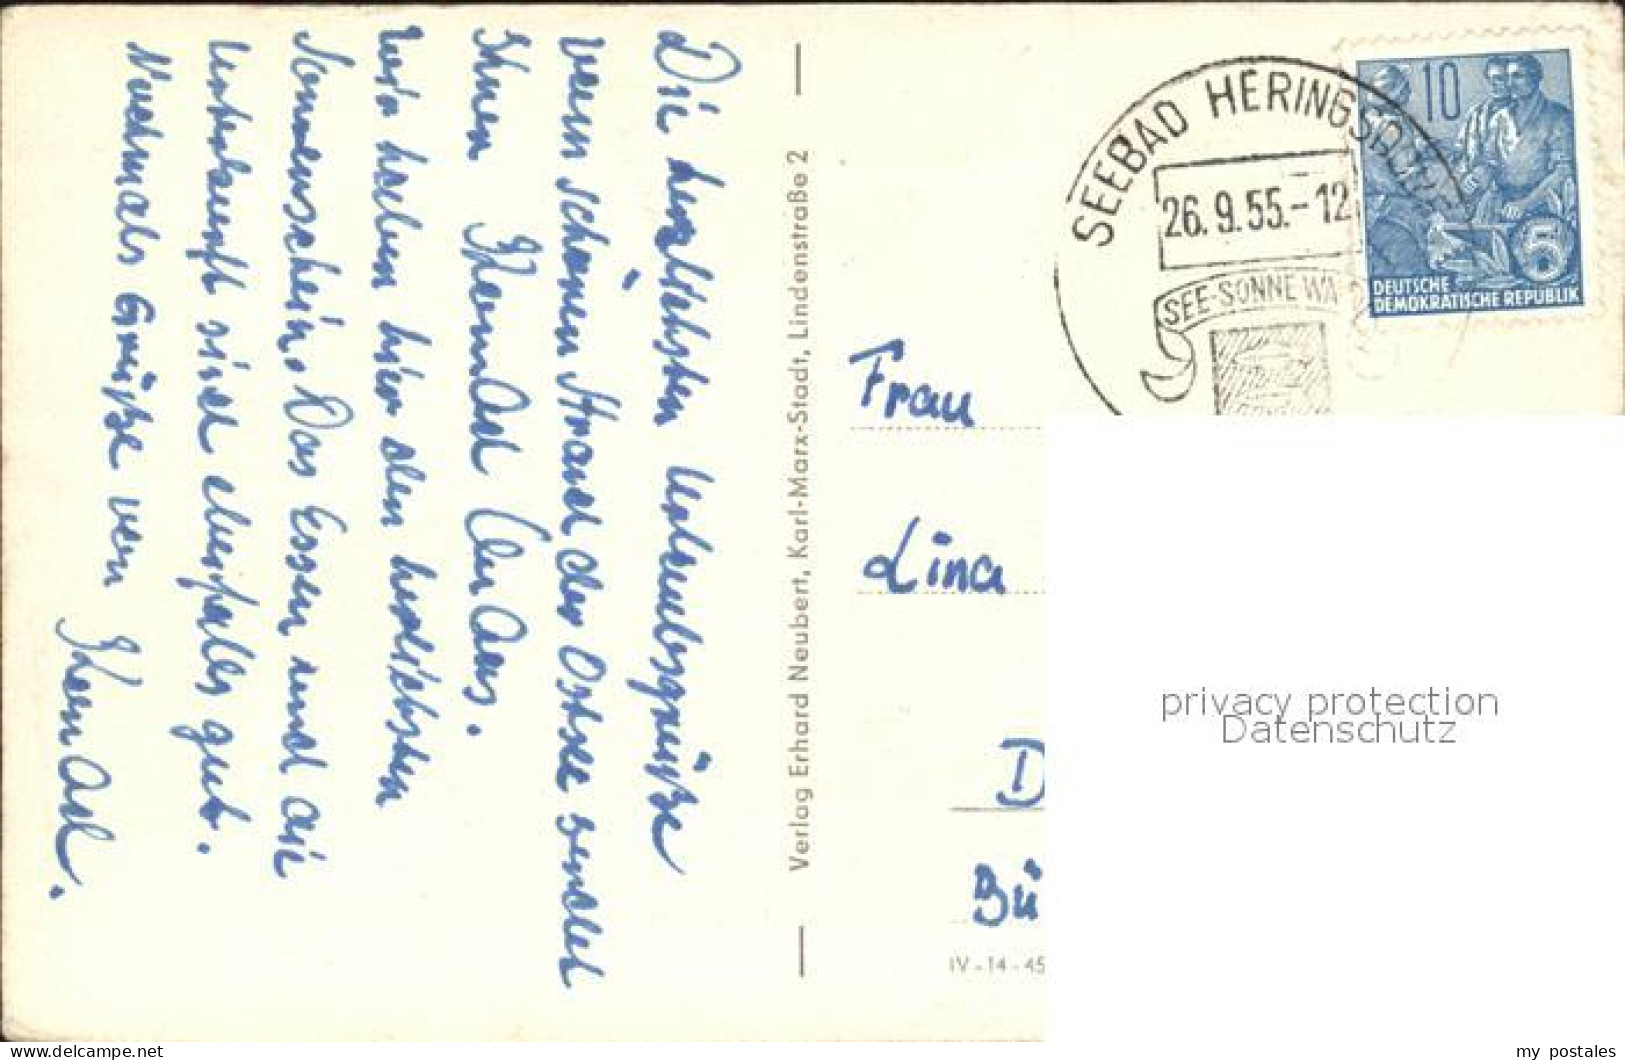 Die herzlichsten Urlaubsgrüße
vom schönen Strand der Ostsee sendet
Ihnen
Wir haben hier den herrlichsten
Sonnenschein. Das Essen und die
Unterkunft sind ebenfalls gut.
Nochmals Grüße von
Verlag Erhard Neubert, Karl-Marx-Stadt, Lindenstraße 2
SEEBAD HERINGSDORF
26.9.55.-12
SEE-SONNE WA
10
5
DEUTSCHE
DEMOKRATISCHE REPUBLIK
Frau
Lina
D
Bü
IV-14-45
privacy protection
Datenschutz
delcampe.net
my_postales